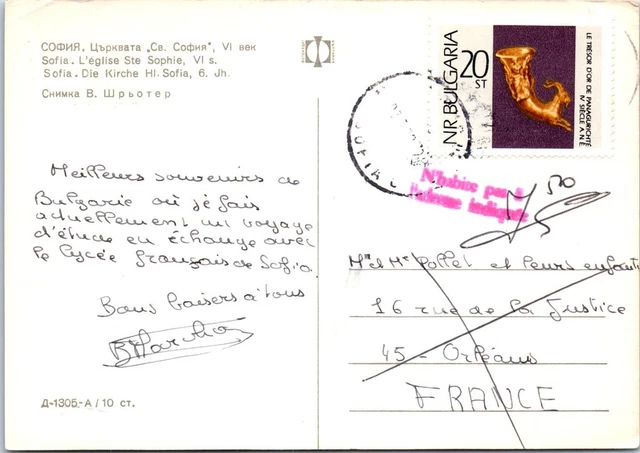 СОФИЯ. Църквата „Св. София", VI век
Sofia. L'église Ste Sophie, VI s.
Sofia. Die Kirche Hl. Sofia, 6. Jh.
Снимка В. Шрьотер
Meilleurs souvenirs de
Bulgarie où je fais
actuellement un voyage
d'étude en échange avec
le lycée français de Sofia
Bons baisers à tous
Д-1305-А / 10 ст.
NR. BULGARIA
20
ST
LE TRÉSOR D'OR DE PANAGURICHTÉ
IV SIÈCLE A.N.È.
N'habite pas à
l'adresse indiquée
Mr et Me Pollet et leurs enfants
16 rue de la Justice
45 - Orléans
FRANCE